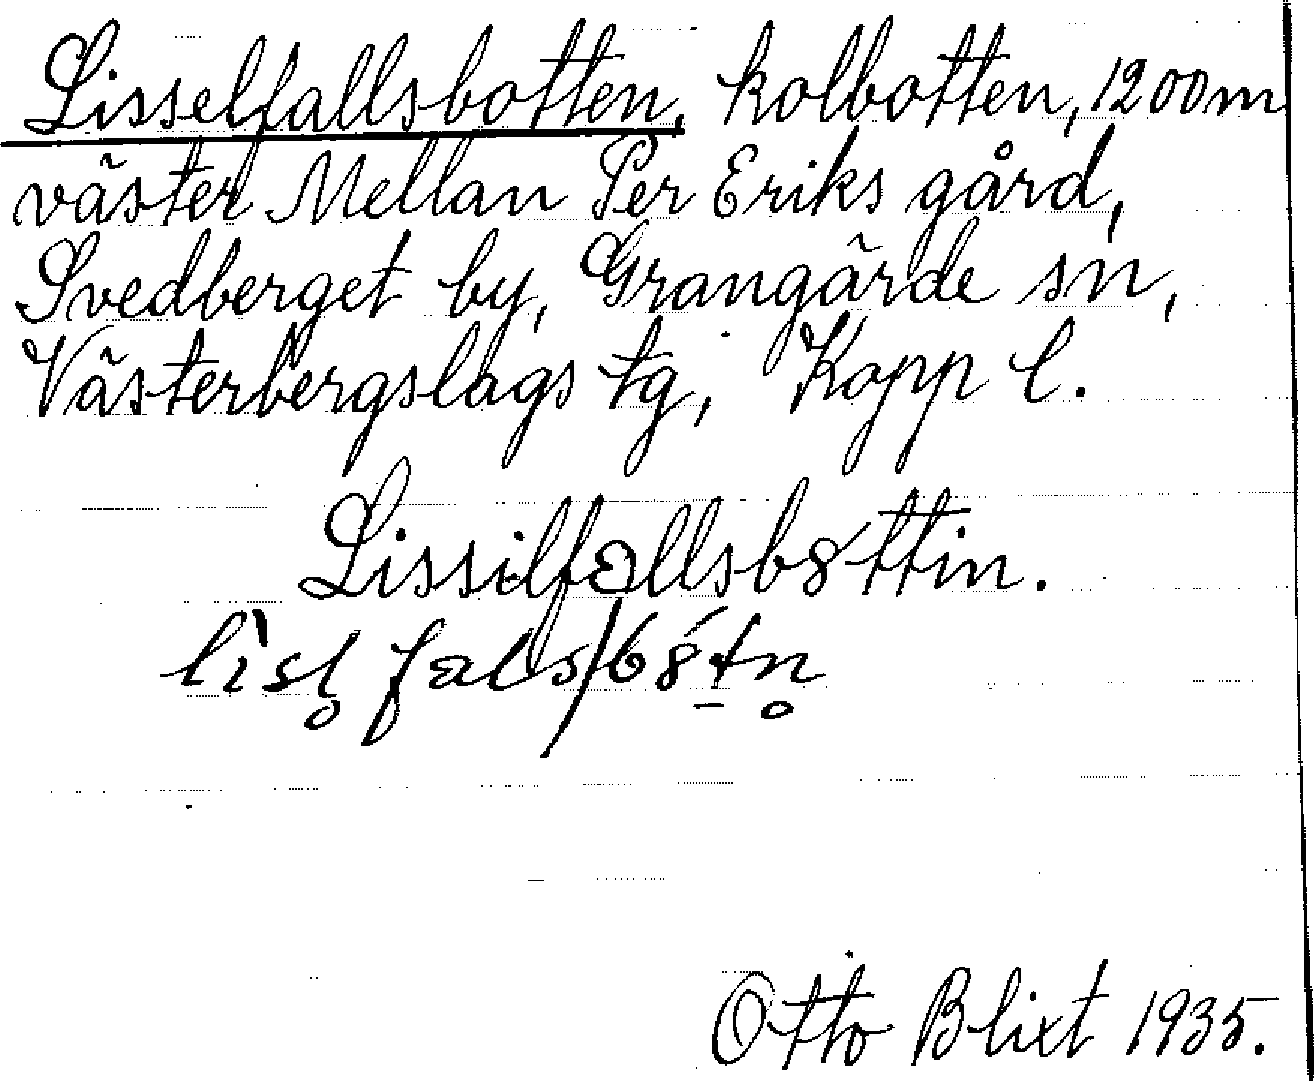 Lisselfallsbotten, kolbotten, 1200 m
väster Mellan Per Eriks gård,
Svedberget by, Grangärde sn,
Västerbergslags tg, Kopp l.
Lissilfallsb8ttin.
lìsl̥ fals/b8́t̠n̥
Otto Blixt 1935.